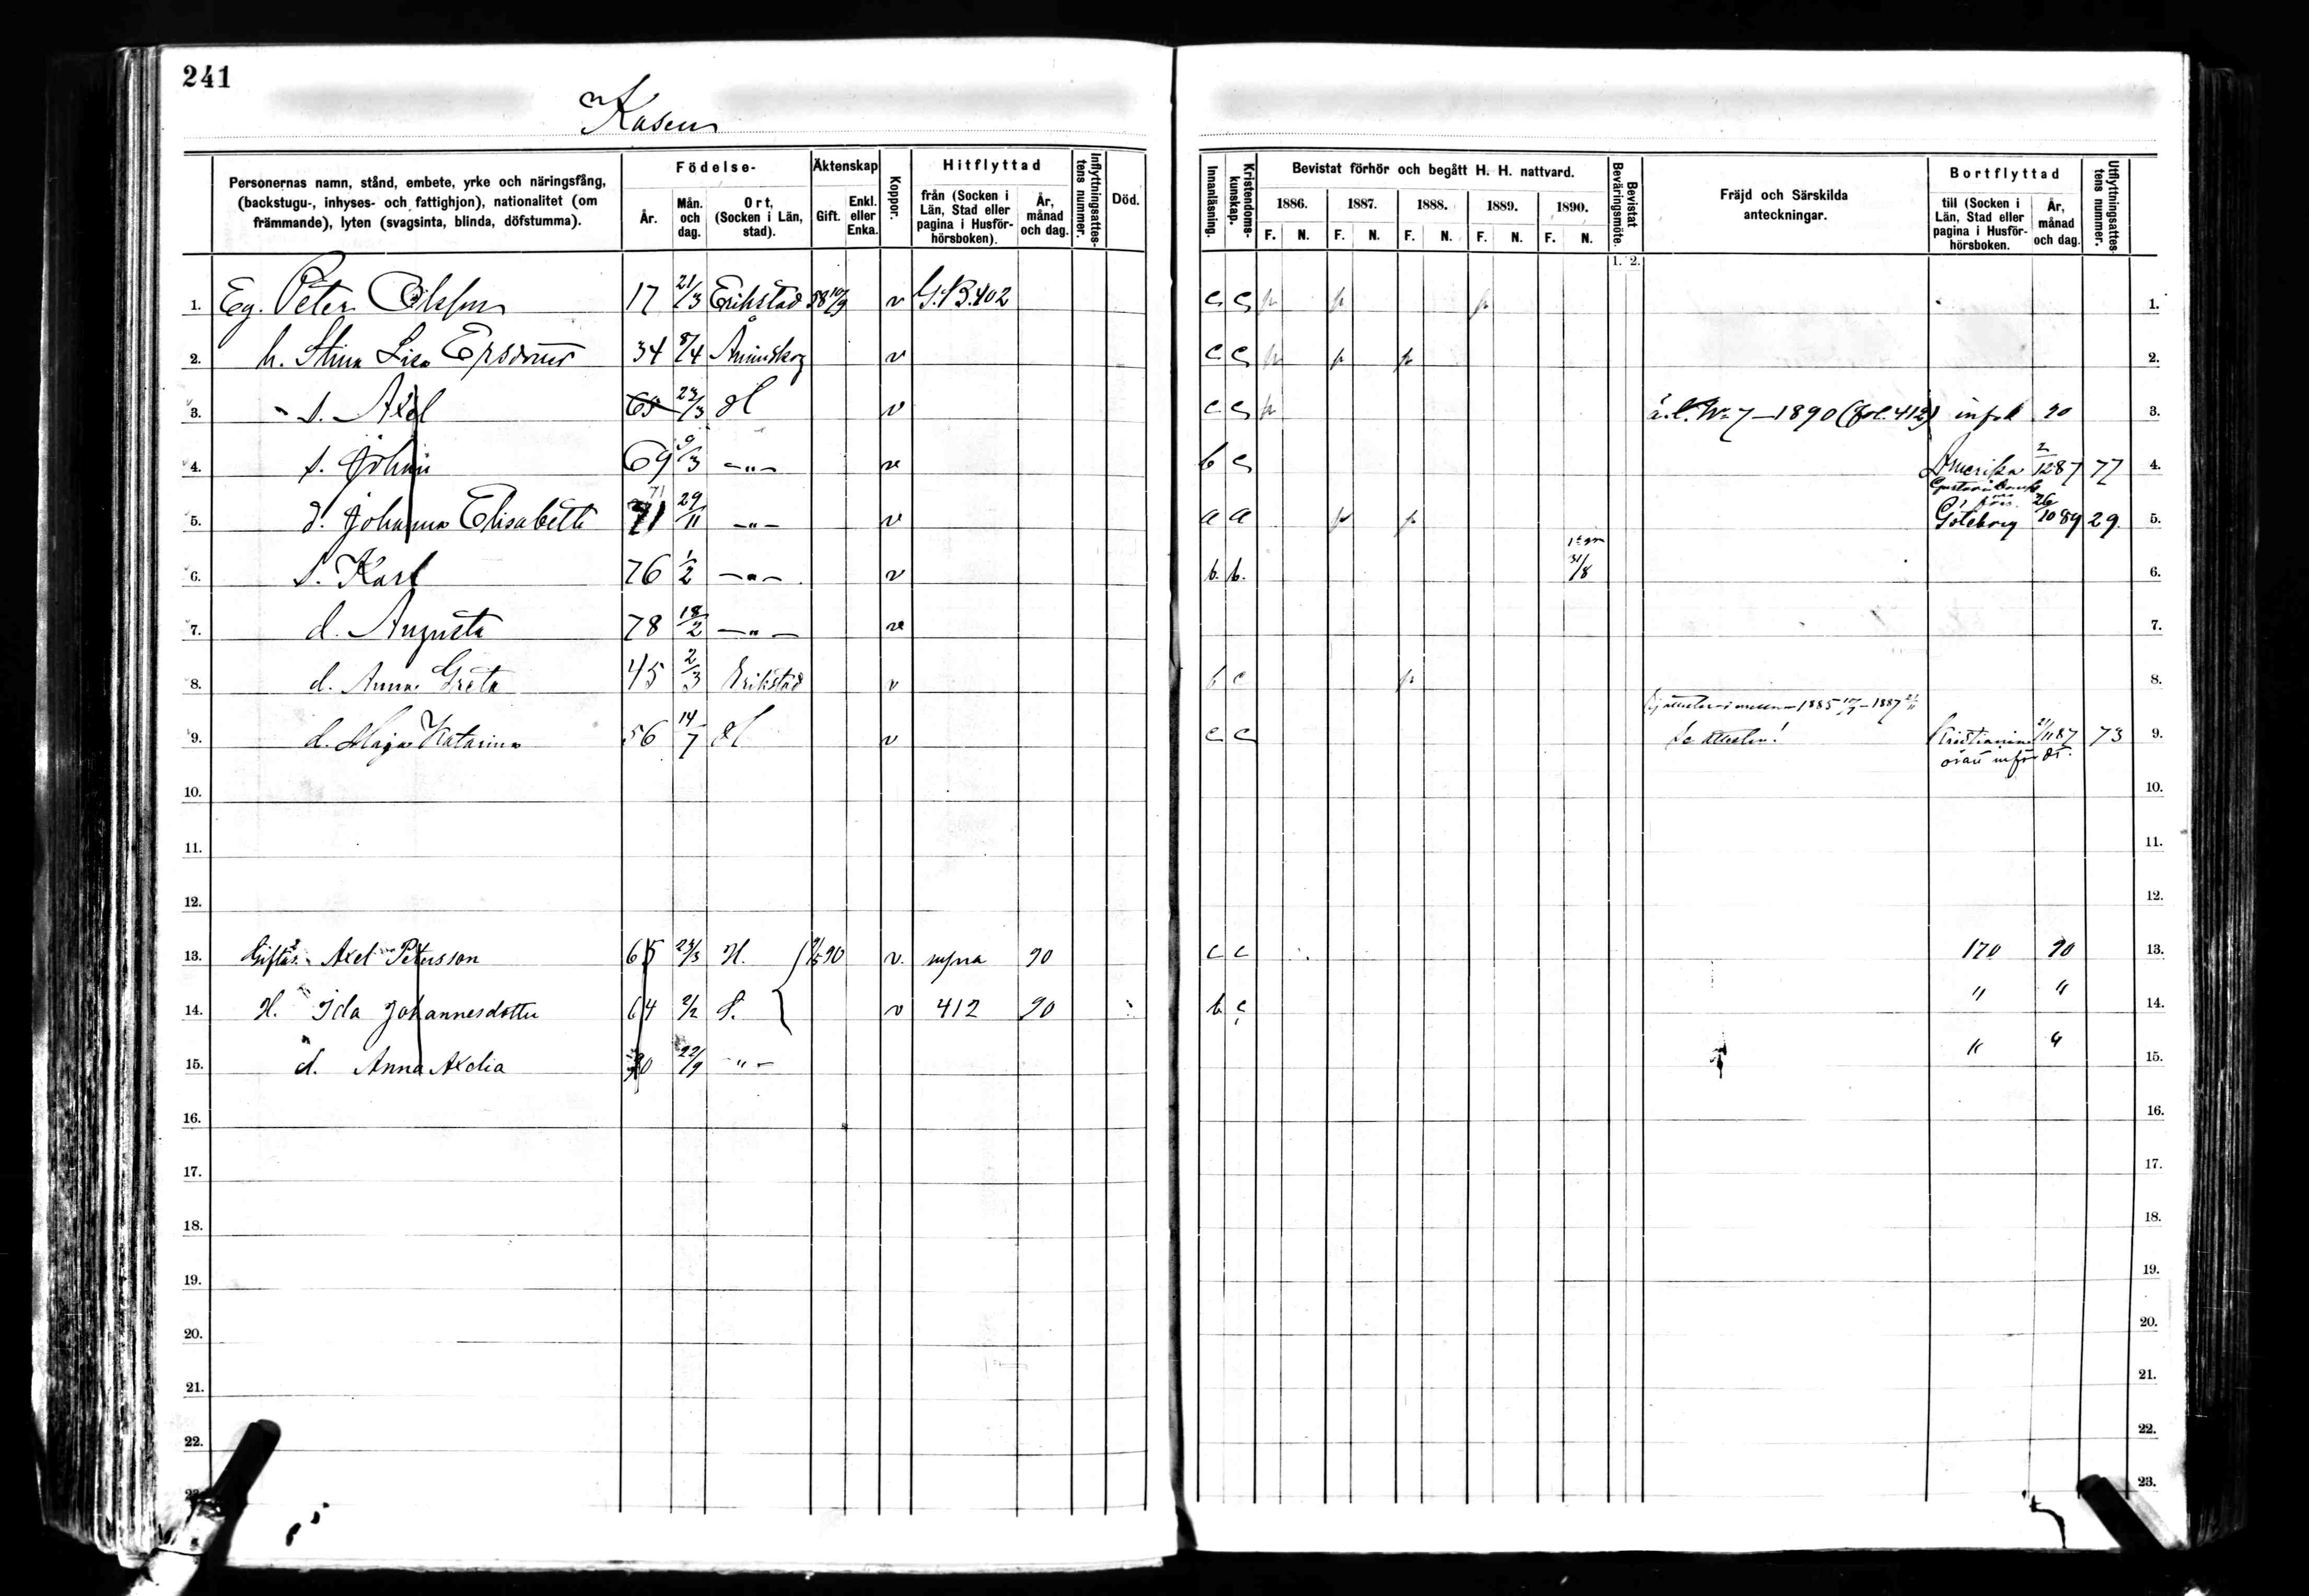 241
Kasen
Personernas namn, stånd, embete, yrke och näringsfång, (backstugu-, inhyses- och fattighjon), nationalitet (om främmande), lyten (svagsinta, blinda, döfstumma).
Födelse-
År.
Mån. och dag.
Ort, (Socken i Län, stad).
Äktenskap
Gift.
Enkl. eller Enka.
Koppor.
Hitflyttad
från (Socken i Län, Stad eller pagina i Husför-hörsboken).
År, månad och dag.
Inflyttningsattes-tens nummer.
Död.
Innanläsning.
Kristendoms-kunskap.
Bevistat förhör och begått H. H. nattvard.
1886. 1887. 1888. 1889. 1890.
F. N. F. N. F. N. F. N. F. N.
Bevistat Beväringsmöte.
1. 2.
Fräjd och Särskilda anteckningar.
Bortflyttad
till (Socken i Län, Stad eller pagina i Husför-hörsboken.
År, månad och dag.
Utflyttningsattes-tens nummer.
1. Eg. Peter Olsson 17 21/3 Erikstad 58 10/9 v G.B.402 c c 1.
2. h. Stina Lisa Ersdotter 34 8/4 Ånimskog v c c 2.
3. s. Axel 65 23/3 H v c c ä.l. No 7-1890 (fol. 412) infra 90 3.
4. s. Johan 69 9/3 -"- v b c Amerika 2/12 87 77 4.
5. d. Johanna Elisabeth 71 71 29/11 -"- v a a Göteborg 26/10 89 29. 5.
6. s. Karl 76 1/2 -"- v b. b. 31/8 6.
7. d. Augusta 78 18/2 -"- v 7.
8. d. Anna Greta 45 2/3 Erikstad v b c 8.
9. d. Maja Katarina 56 14/7 H v c c Se attesten! Kristiania 21/11 87 73 9.
10. 10.
11. 11.
12. 12.
13. Axel Petersson 65 23/3 H. 90 v. supra 90 c c 170 90 13.
14. H. Ida Johannesdotter 64 2/2 v 412 90 b c " " 14.
15. d. Anna Axelia 90 22/9 -"- " " 15.
16. 16.
17. 17.
18. 18.
19. 19.
20. 20.
21. 21.
22. 22.
23. 23.